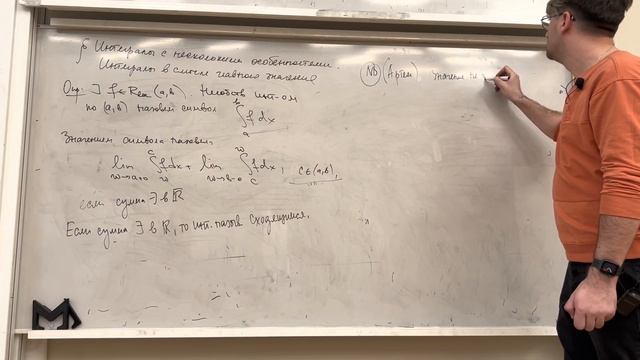 § Интегралы с несколькими особенностями.
Интеграл в смысле главного значения
Опр: ∃ f ∈ R_loc (a,b). Несобств. инт-ом
по (a,b) назовём символ ∫_a^b f dx
Значением символа назовём
lim_{w→a+0} ∫_w^c f dx + lim_{w→b-0} ∫_c^w f dx, c∈(a,b),
если сумма ∃ в R̄
Если сумма ∃ в R, то инт. назов. сходящимся.
NB (Артем) Значение не